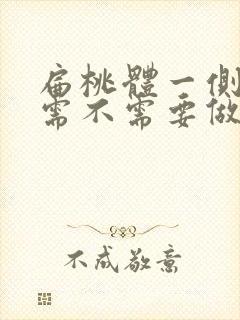 扁桃體一側
需不需要做
不成敬意